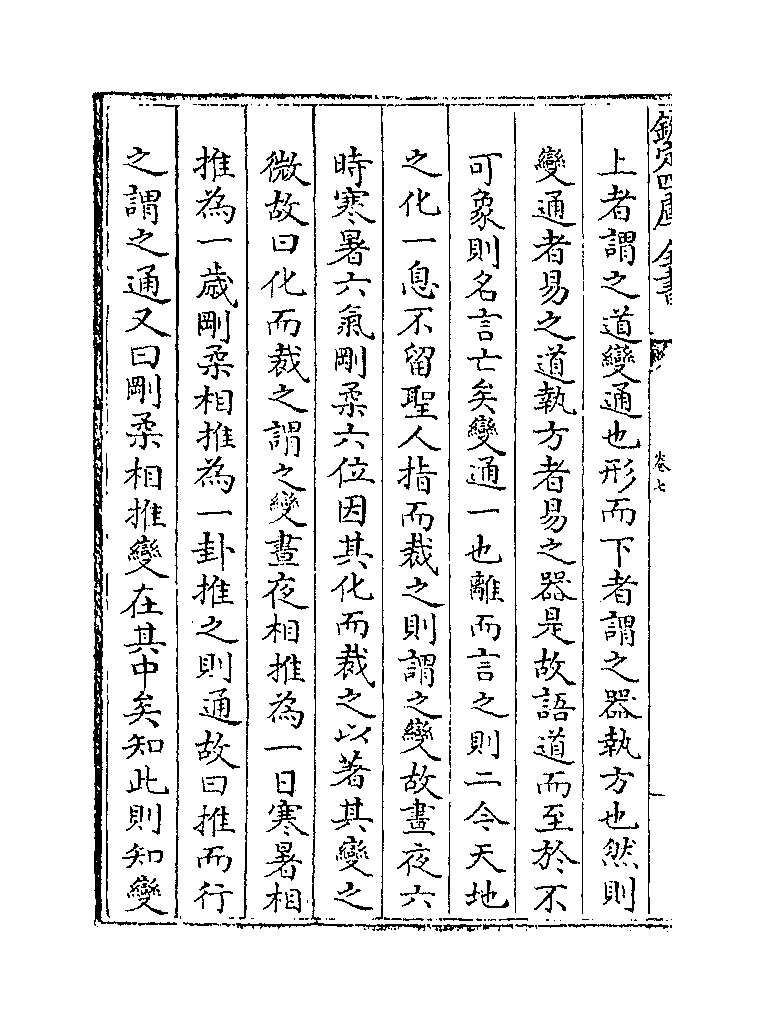 欽定四庫全書
卷七
上者謂之道變通也形而下者謂之器執方也然則
變通者易之道執方者易之器是故語道而至於不
可象則名言亡矣變通一也離而言之則二今天地
之化一息不留聖人指而裁之則謂之變故晝夜六
時寒暑六氣剛柔六位因其化而裁之以著其變之
微故曰化而裁之謂之變晝夜相推為一日寒暑相
推為一歲剛柔相推為一卦推之則通故曰推而行
之謂之通又曰剛柔相推變在其中矣知此則知變